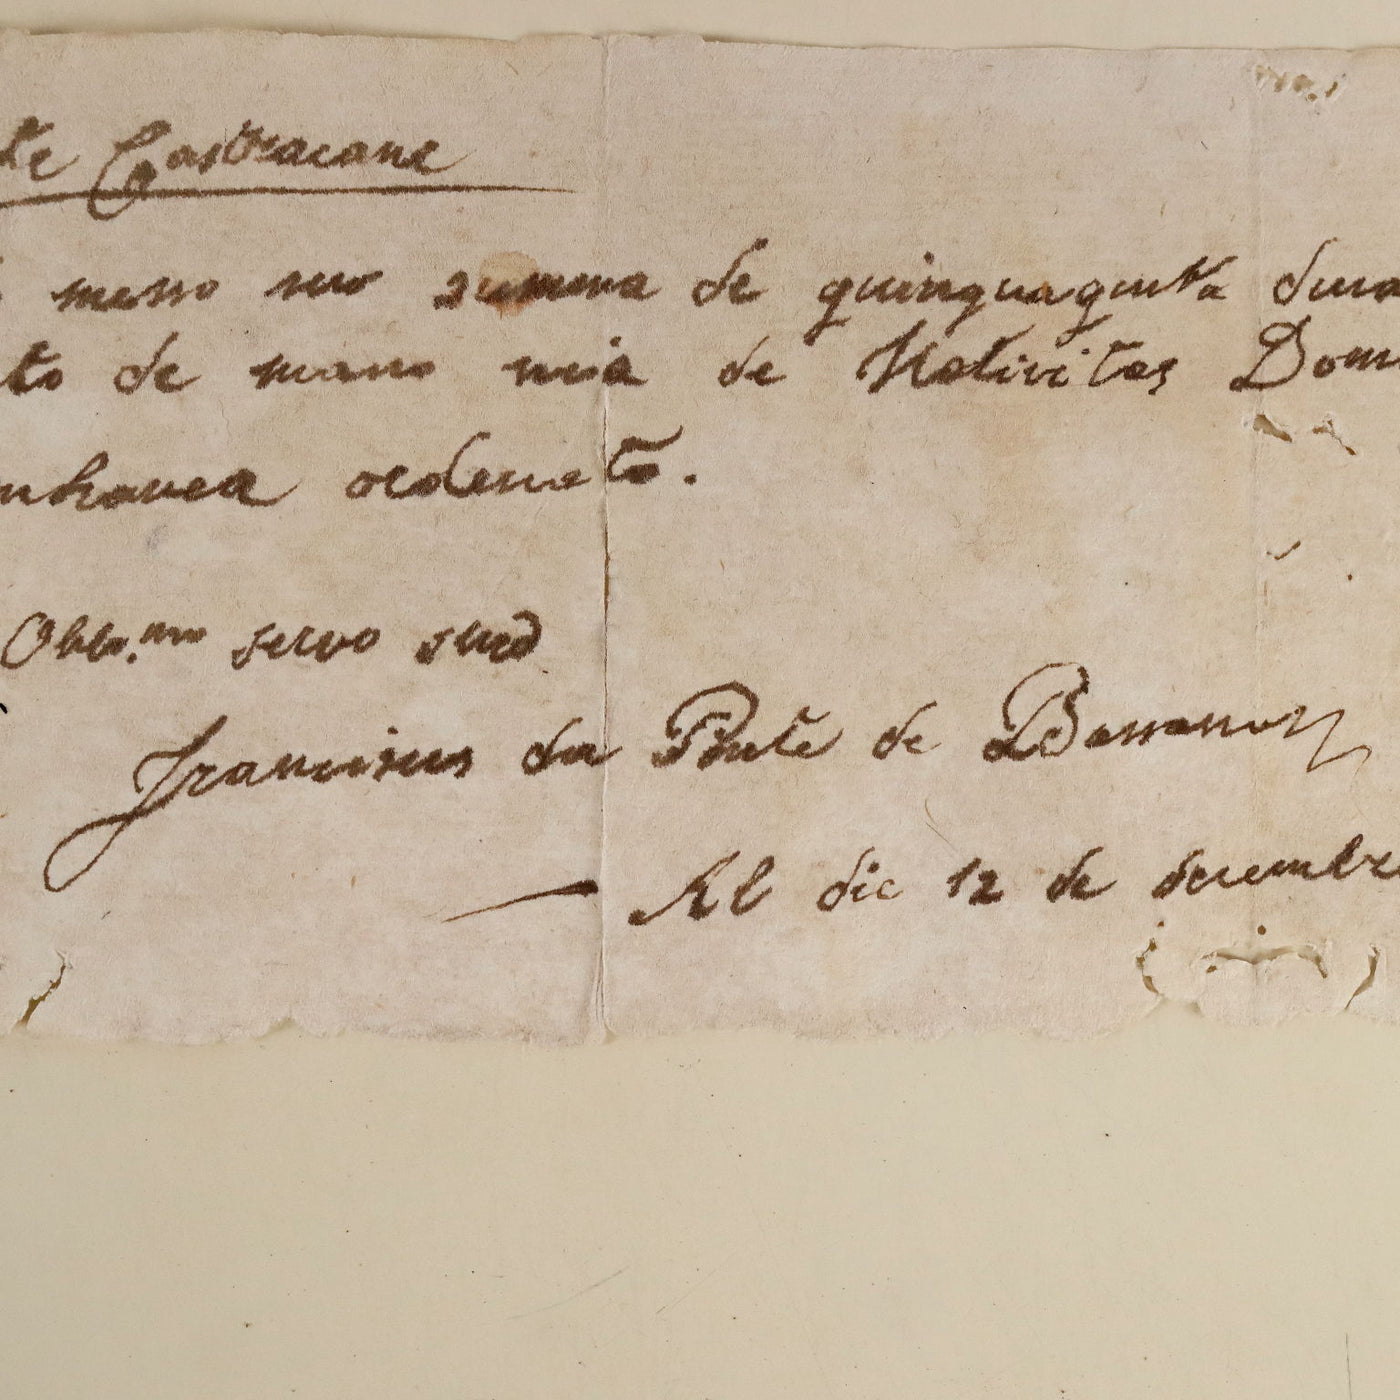 te Castracane
messo suo summa de quinquaginta duca
to de mano mia de Nativitas Dom
ordenato.
Obblo.mo servo suo
Franciscus da Ponte de Bassano
Al die 12 de decembre